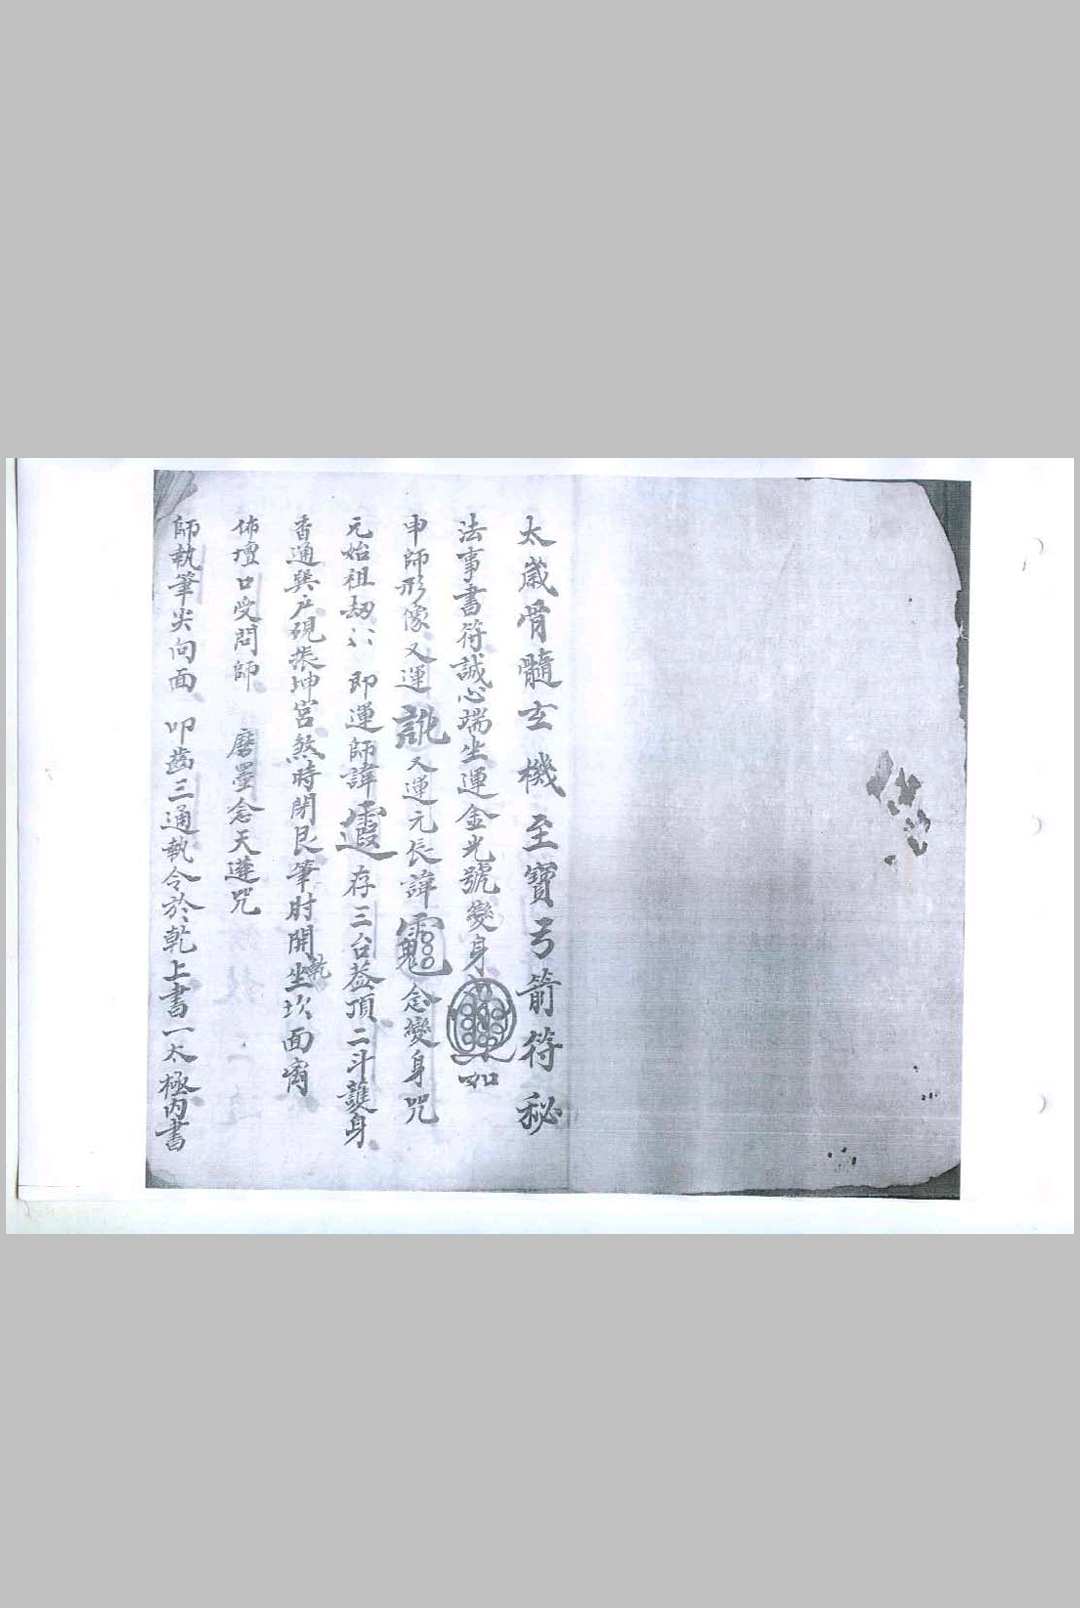 太歲骨髓玄機至寶弓箭符秘
法事書符誠心端坐運金光號變身如
申師形像又運 又運元長諱 念變身咒
元始祖劫 即運師諱 存三台蓋頂二斗護身
香通巽户硯張坤宮煞時閉艮筆肘開乾坐坎面离
佈壇口受問師 磨墨念天蓬咒
師執筆尖向面 叩齒三通執令於乾上書一太極內書